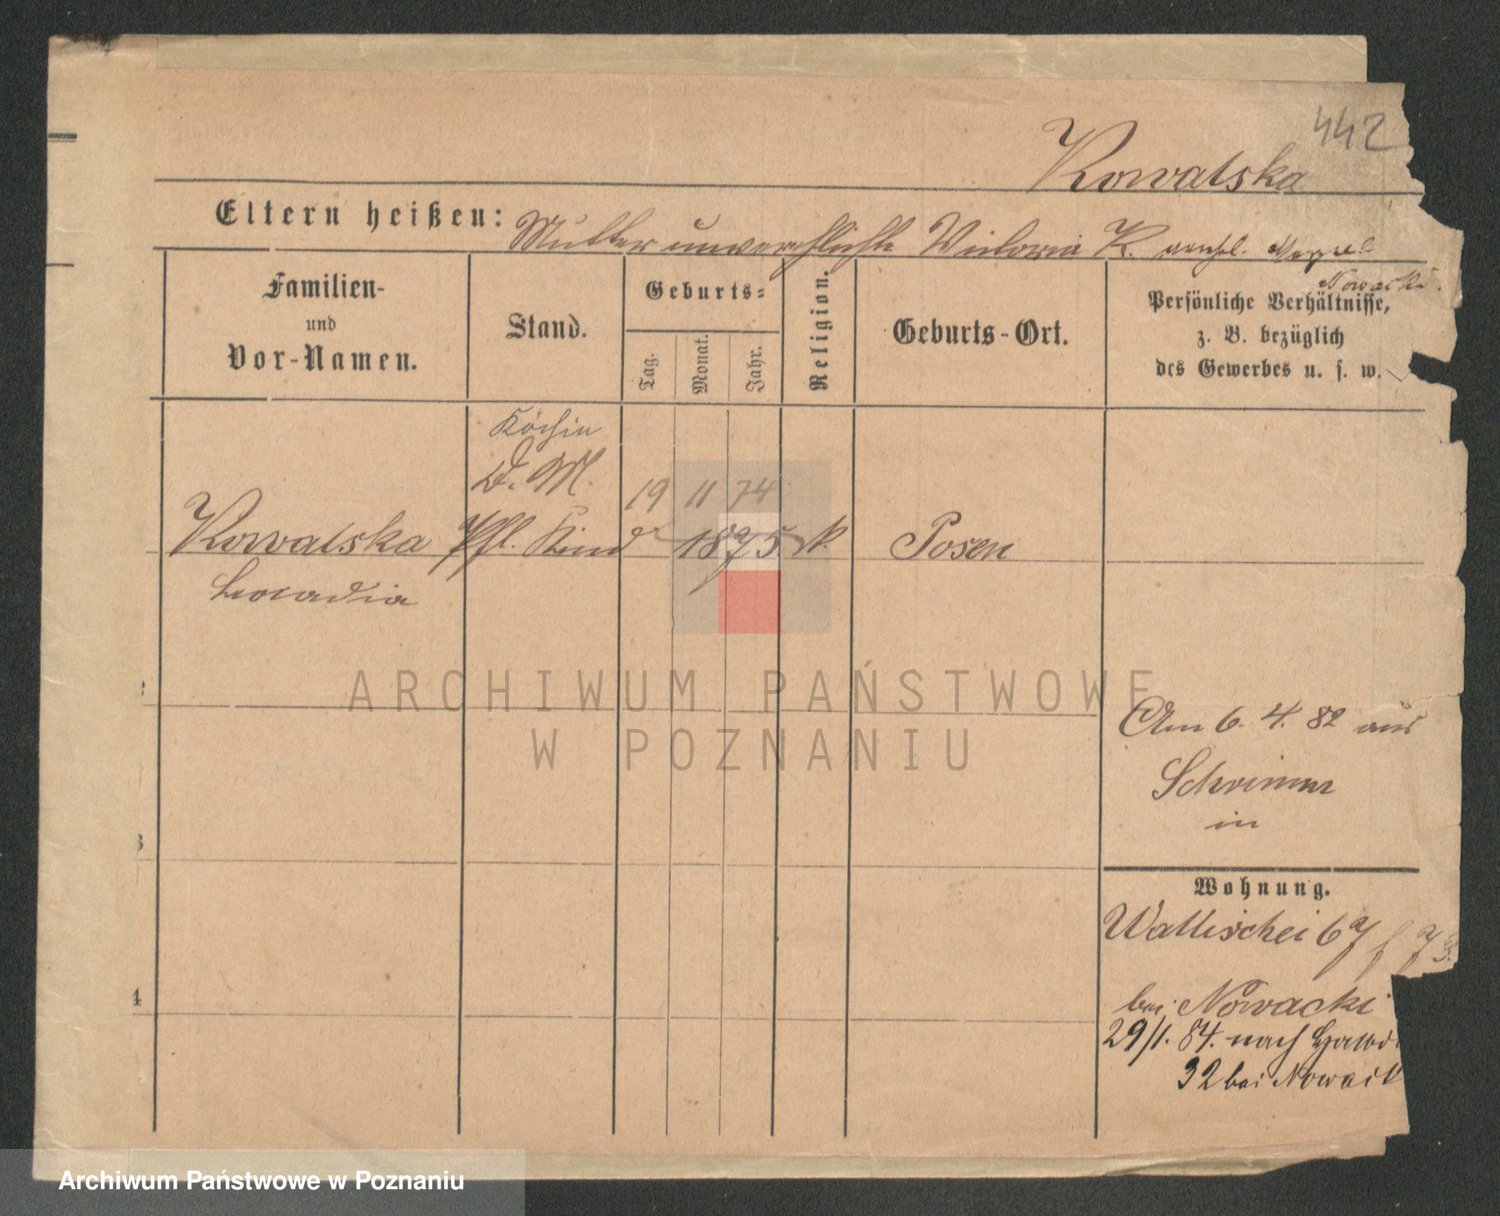 442
Kowalska
Eltern heißen: Mutter unverehlichte Victoria K. verehl.
Nowacki.
Familien-
und
Vor-Namen.
Stand.
Geburts-
Tag.
Monat.
Jahr.
Religion.
Geburts-Ort.
Persönliche Verhältnisse,
z. B. bezüglich
des Gewerbes u. s. w.
Köchin
D. M.
19 11 74
Kowalska Pfl. Kind 1875 k. Posen
Leocadia
2
Am 6. 4. 82 aus
Schrimm
in
3
Wohnung.
Wallischei 67 73.
4
bei Nowacki
29/1. 84. nach
32 bei Nowack
ARCHIWUM PAŃSTWOWE
W POZNANIU
Archiwum Państwowe w Poznaniu